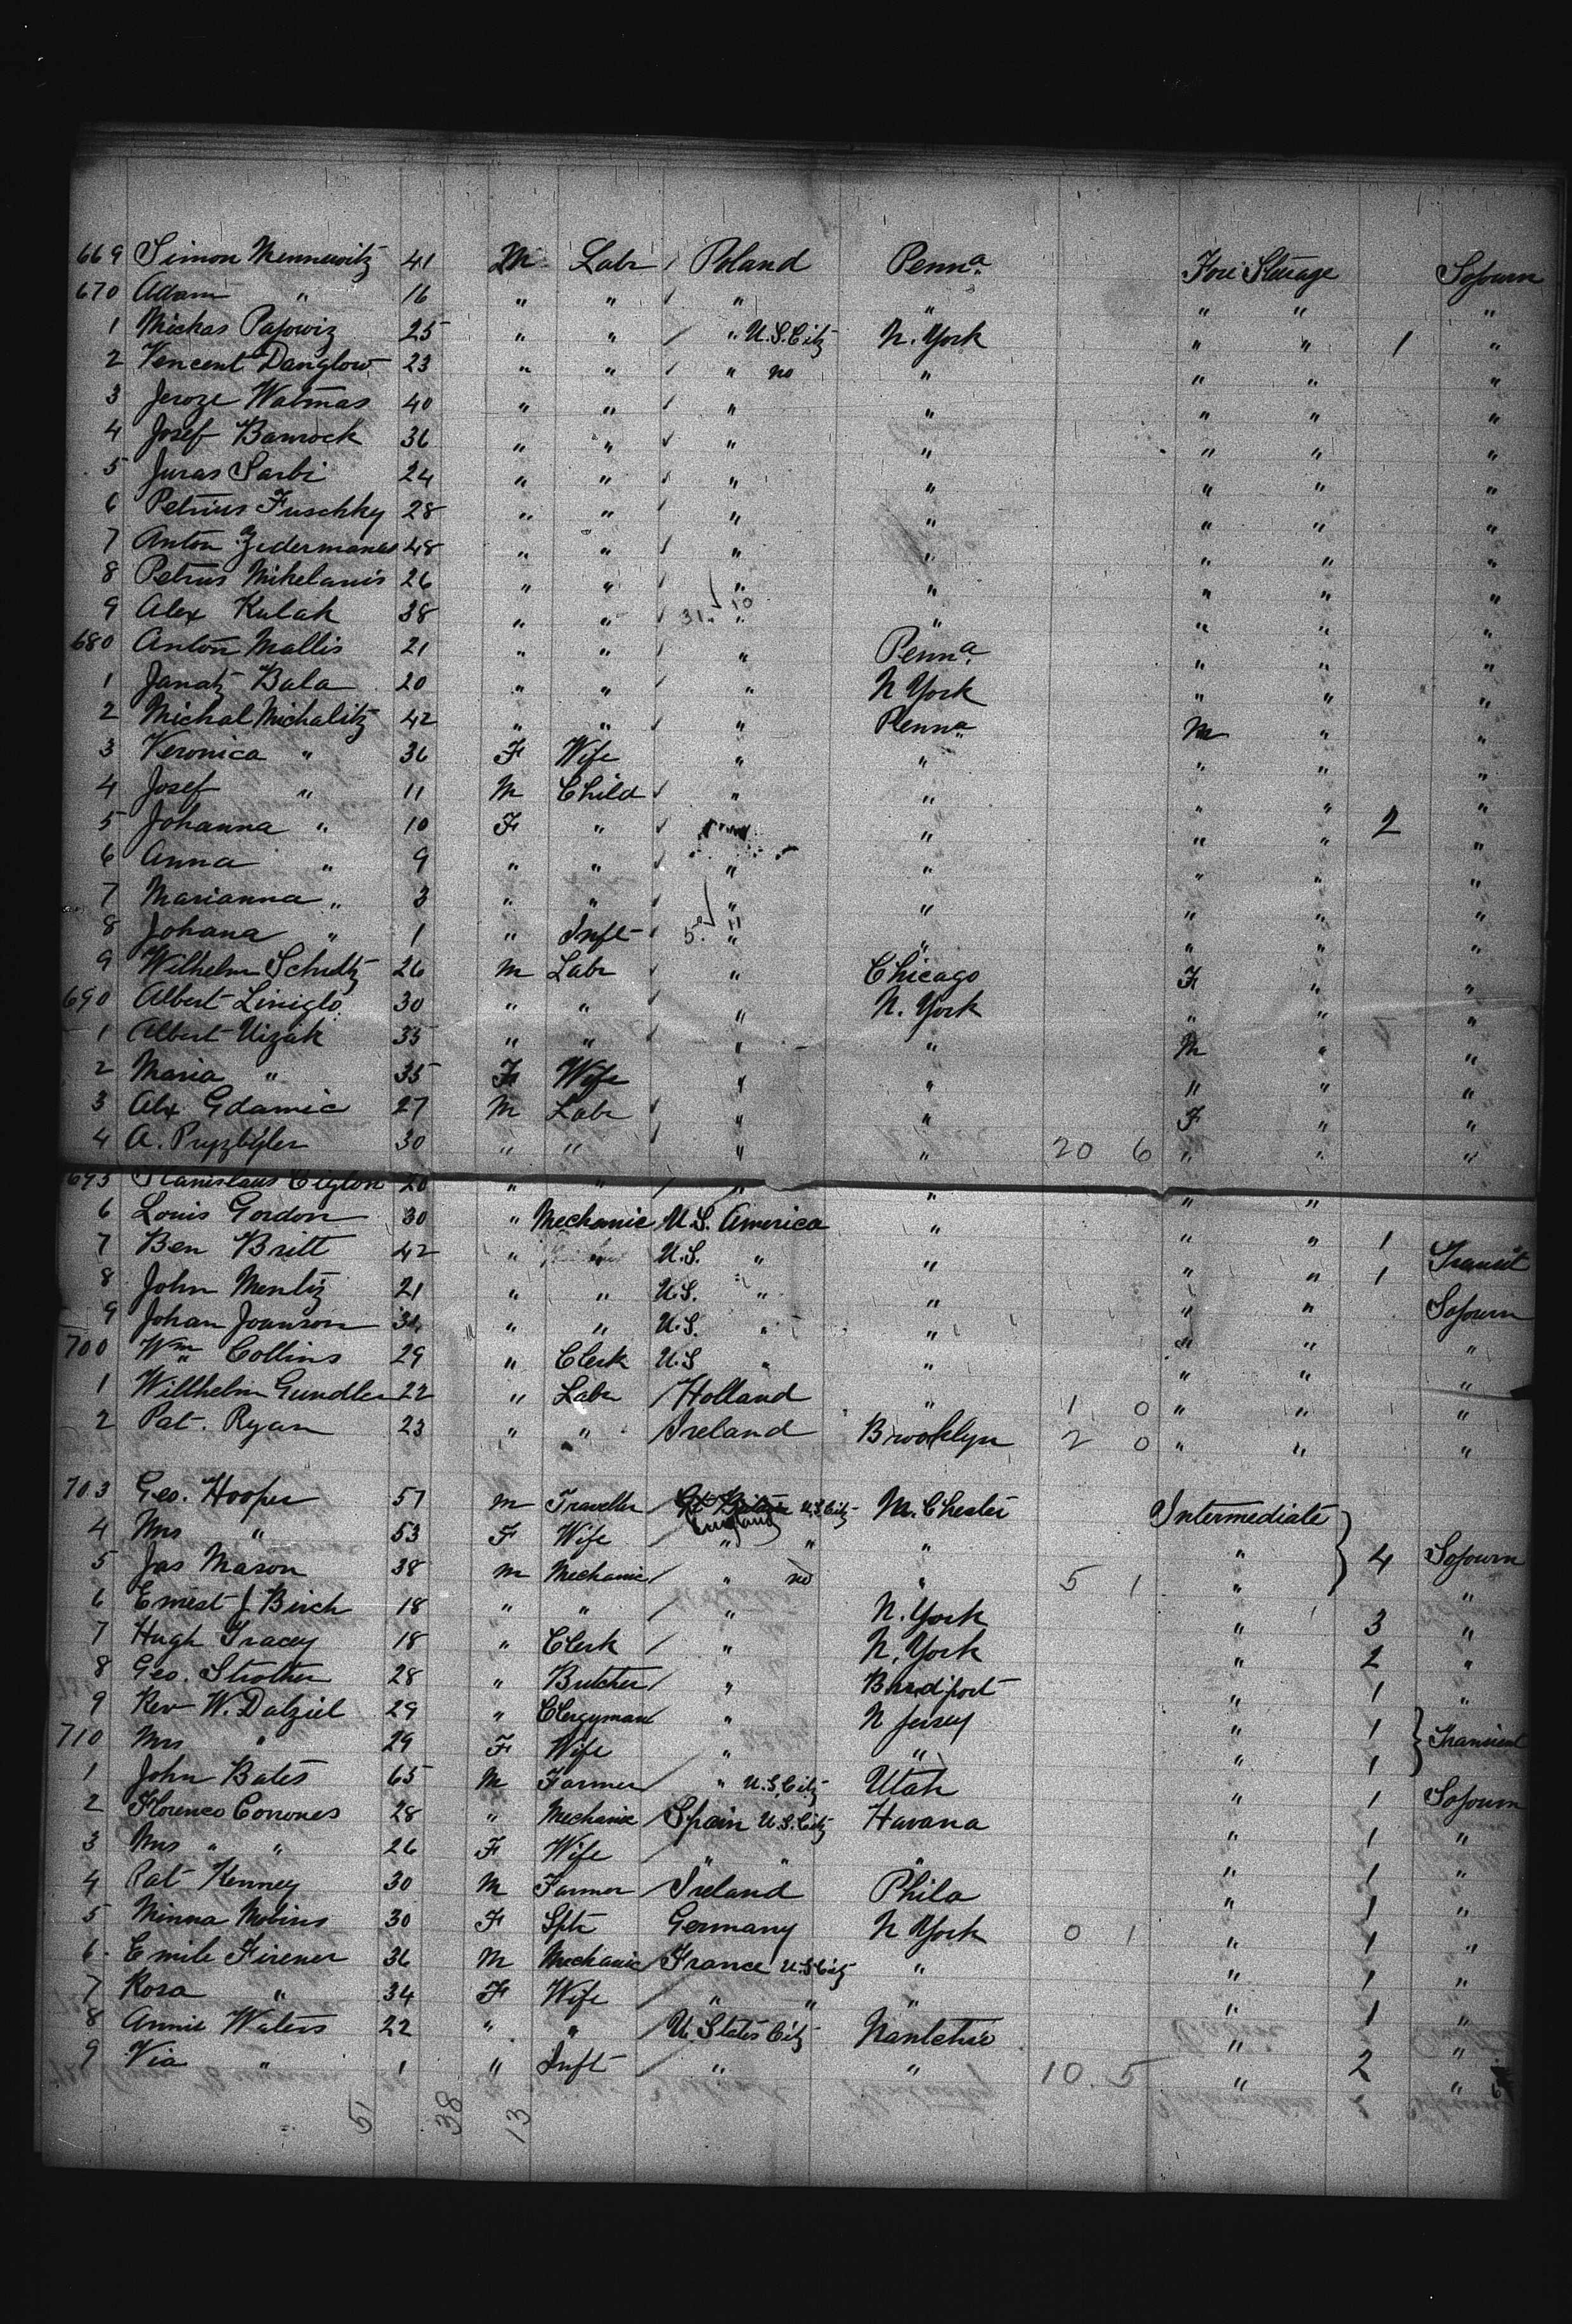 669 Simon Mennewitz 41 M Labr / Poland Penna. Fore Steerage Sojourn
670 Adam " 16 " " " " " " "
1 Mickas Papowiz 25 " " / " U.S. Citz N. York " " 1 "
2 Vencent Danglow 23 " " " no " " " "
3 Jeroze Watmas 40 " " " " " " "
4 Josef Banrock 36 " " " " " " "
5 Juras Sarbi 24 " " " " " " "
6 Petrius Fuschky 28 " " " " " " "
7 Anton Zedermanas 48 " " " " " " "
8 Petrus Mikelanis 26 " " " " " " "
9 Alex Kulak 38 " " 31. 10 " " " " "
680 Anton Mallis 21 " " " Penna. " " "
1 Janatz Bala 20 " " " N York " " "
2 Michal Michalitz 42 " " " Penna M " "
3 Veronica " 36 F Wife " " " " "
4 Josef " 11 M Child " " " " "
5 Johanna " 10 F " " " " 2 "
6 Anna " 9 " " " " " " "
7 Marianna " 3 " " " " " " "
8 Johana " 1 " Inft 5. 11 " " " " "
9 Wilhelm Schultz 26 M Labr " Chicago F " "
690 Albert Liniglo 30 " " " N. York " " "
1 Albert Uizak 35 " " " " M " "
2 Maria " 35 F Wife " " " " "
3 Alx Gdamic 27 M Labr " " F " "
4 A. Pryzbigler 30 " " " " 20 6 " " "
695 Stanislaus Ciglon 20 " " / " " " "
6 Louis Gordon 30 " Mechanic U.S. America " " " 1
7 Ben Britt 42 " " U.S. " " " " 1 Transit
8 John Mentiz 21 " " U.S. " " " " Sojourn
9 Johan Joanson 34 " " U.S. " " " " "
700 Wm Collins 29 " Clerk U.S " " " " "
1 Willhelm Gundler 22 " Labr / Holland " 1 0 " " "
2 Pat. Ryan 23 " " / Ireland Brooklyn 2 0 " " "
703 Geo. Hooper 57 M Traveller / Gt Britain England U.S. Citz M. Chester Intermediate
4 Mrs " 53 F Wife / " " " " 4 Sojourn
5 Jas Mason 38 M Mechanic / " no " 5 1 " "
6 Ernest J Birch 18 " " / " N. York " 3 "
7 Hugh Tracey 18 " Clerk / " N. York " 2 "
8 Geo. Strother 28 " Butcher / " Bradfort " 1 "
9 Rev W. Dalziel 29 " Clergyman " N Jersey " 1 Transient
710 Mrs " 29 F Wife " " " 1
1 John Bates 65 M Farmer / " U.S. Citz Utah " 1 Sojourn
2 Florenco Corrones 28 " Mechanic / Spain U.S. Citz Havana " 1 "
3 Mrs " " 26 F Wife / " " " " 1 "
4 Pat Kenney 30 M Farmer / Ireland Phila " 1 "
5 Minna Mobius 30 F Sptr Germany N York 0 1 " 1 "
6 Emile Firener 36 M Mechanic / France U.S. Citz " " 1 "
7 Rosa " 34 F Wife / " " " " 1 "
8 Annie Waters 22 " " / U. States Citz " "
9 Via " 1 " Inft / " " 10. 5 " 2 "
51 38 13